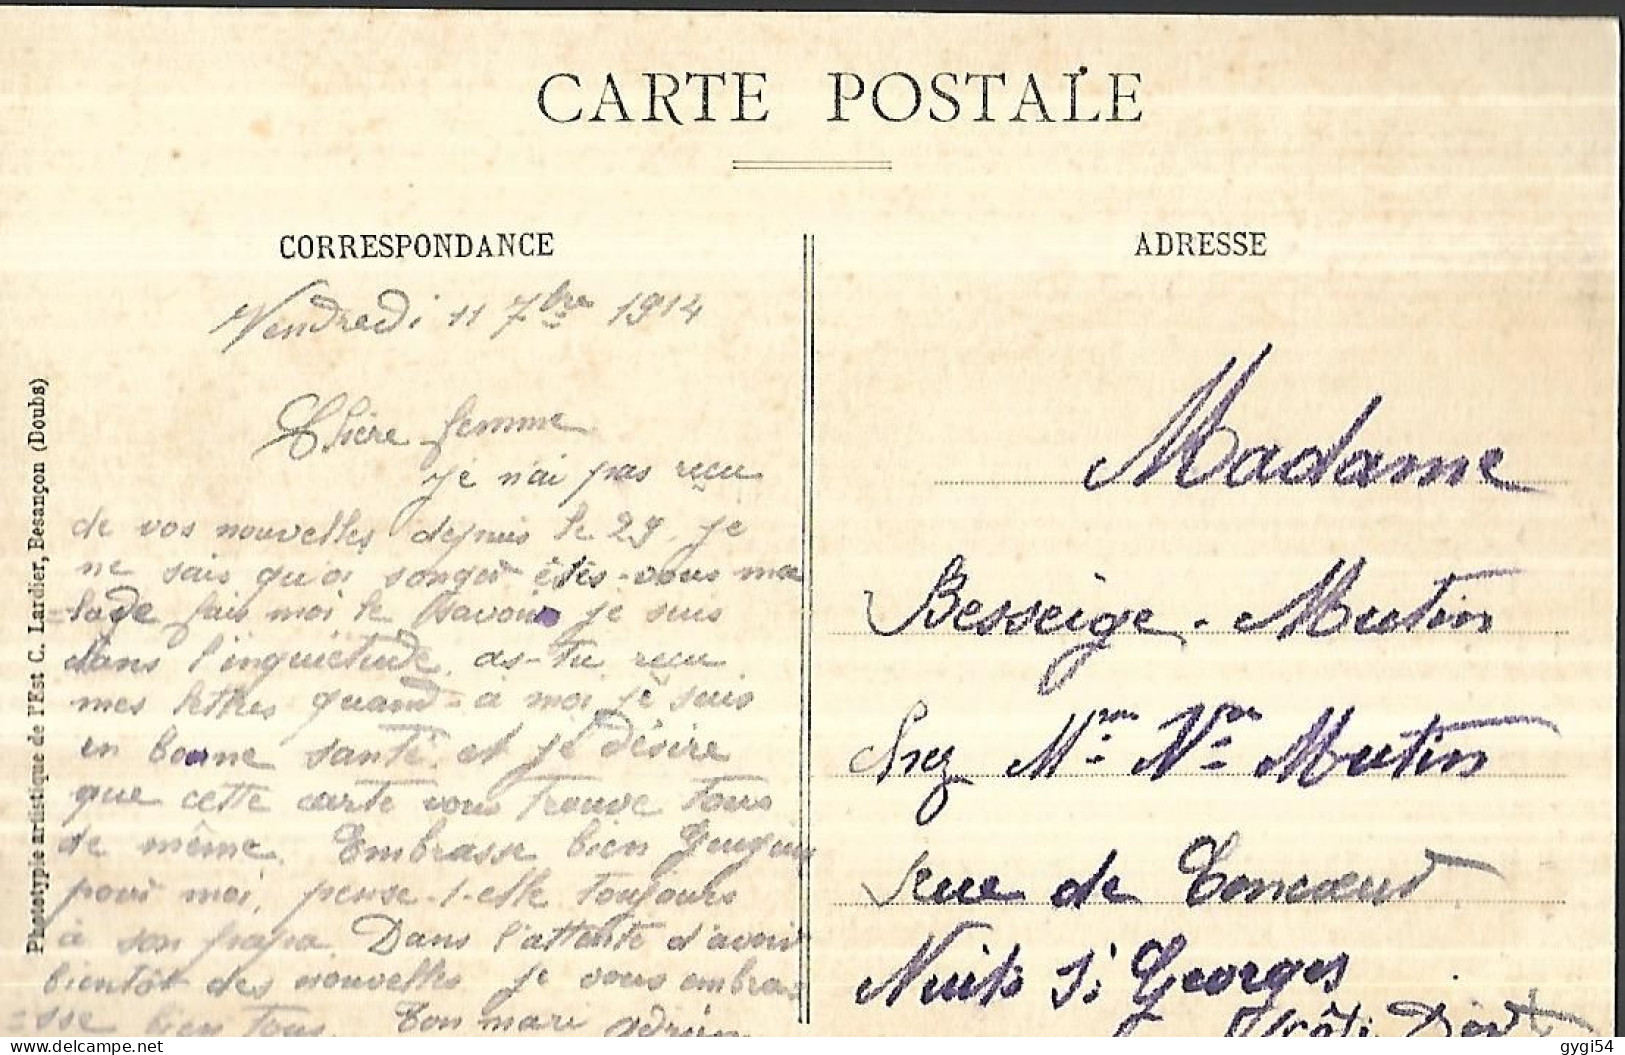 CARTE POSTALE
CORRESPONDANCE
Vendredi 11 7bre 1914
Chère femme
je n'ai pas reçu
de vos nouvelles depuis le 29. je
ne sais qu'oi songer êtes-vous ma
=lade fais moi le savoir je suis
dans l'inquiétude. as-tu reçu
mes lettres quand-à moi je suis
en bonne santé. et je désire
que cette carte vous trouve tous
de même. Embrasse bien
pour moi. pense-t-elle toujours
à son papa. Dans l'attente d'avoir
bientôt des nouvelles je vous embras
=sse bien tous. Ton mari Adrien
Phototypie artistique de l'Est C. Lardier, Besançon (Doubs)
ADRESSE
Madame
Besseige-Mutin
chez Mme Vve Mutin
rue de Concoeur
Nuits St Georges
Côte D'or
gygi54